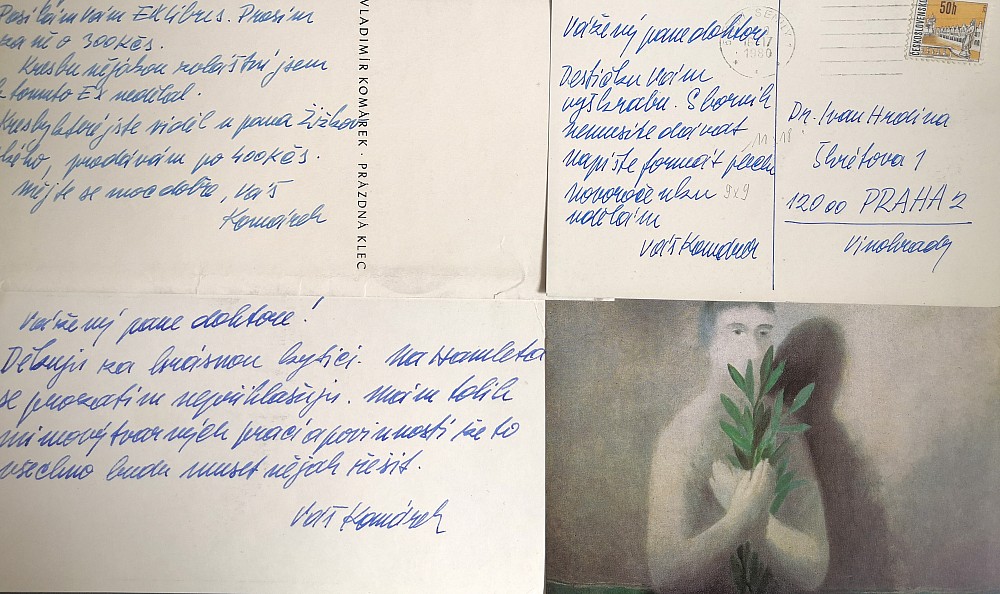 Posílám Vám EX libres. Prosím
za ně o 300 Kčs.
Kresbu nějakou zvláštní jsem
k tomuto Ex nedělal.
Kresby které jste viděl u pana Žižkov
ského, prodávám po 400 Kčs.
Mějte se moc dobře, Váš
Komárek
VLADIMÍR KOMÁREK · PRÁZDNÁ KLEC
Vážený pane doktore
Destičku Vám
vyškrabu. Sborník
nemusíte dávat
napište formát plech
novoročenku 9x9
udělám
Váš Komárek
SEMILY
1980
ČESKOSLOVENSKO
50h
Dr. Ivan Hrdina
Škrétova 1
120 00 PRAHA 2
Vinohrady
Vážený pane doktore!
Děkuji za krásnou kytici. Na Hamleta
se prozatím nepřihlašuji. Mám tolik
mimovýtvarných prací a povinností že to
všechno budu muset nějak řešit.
Váš Komárek